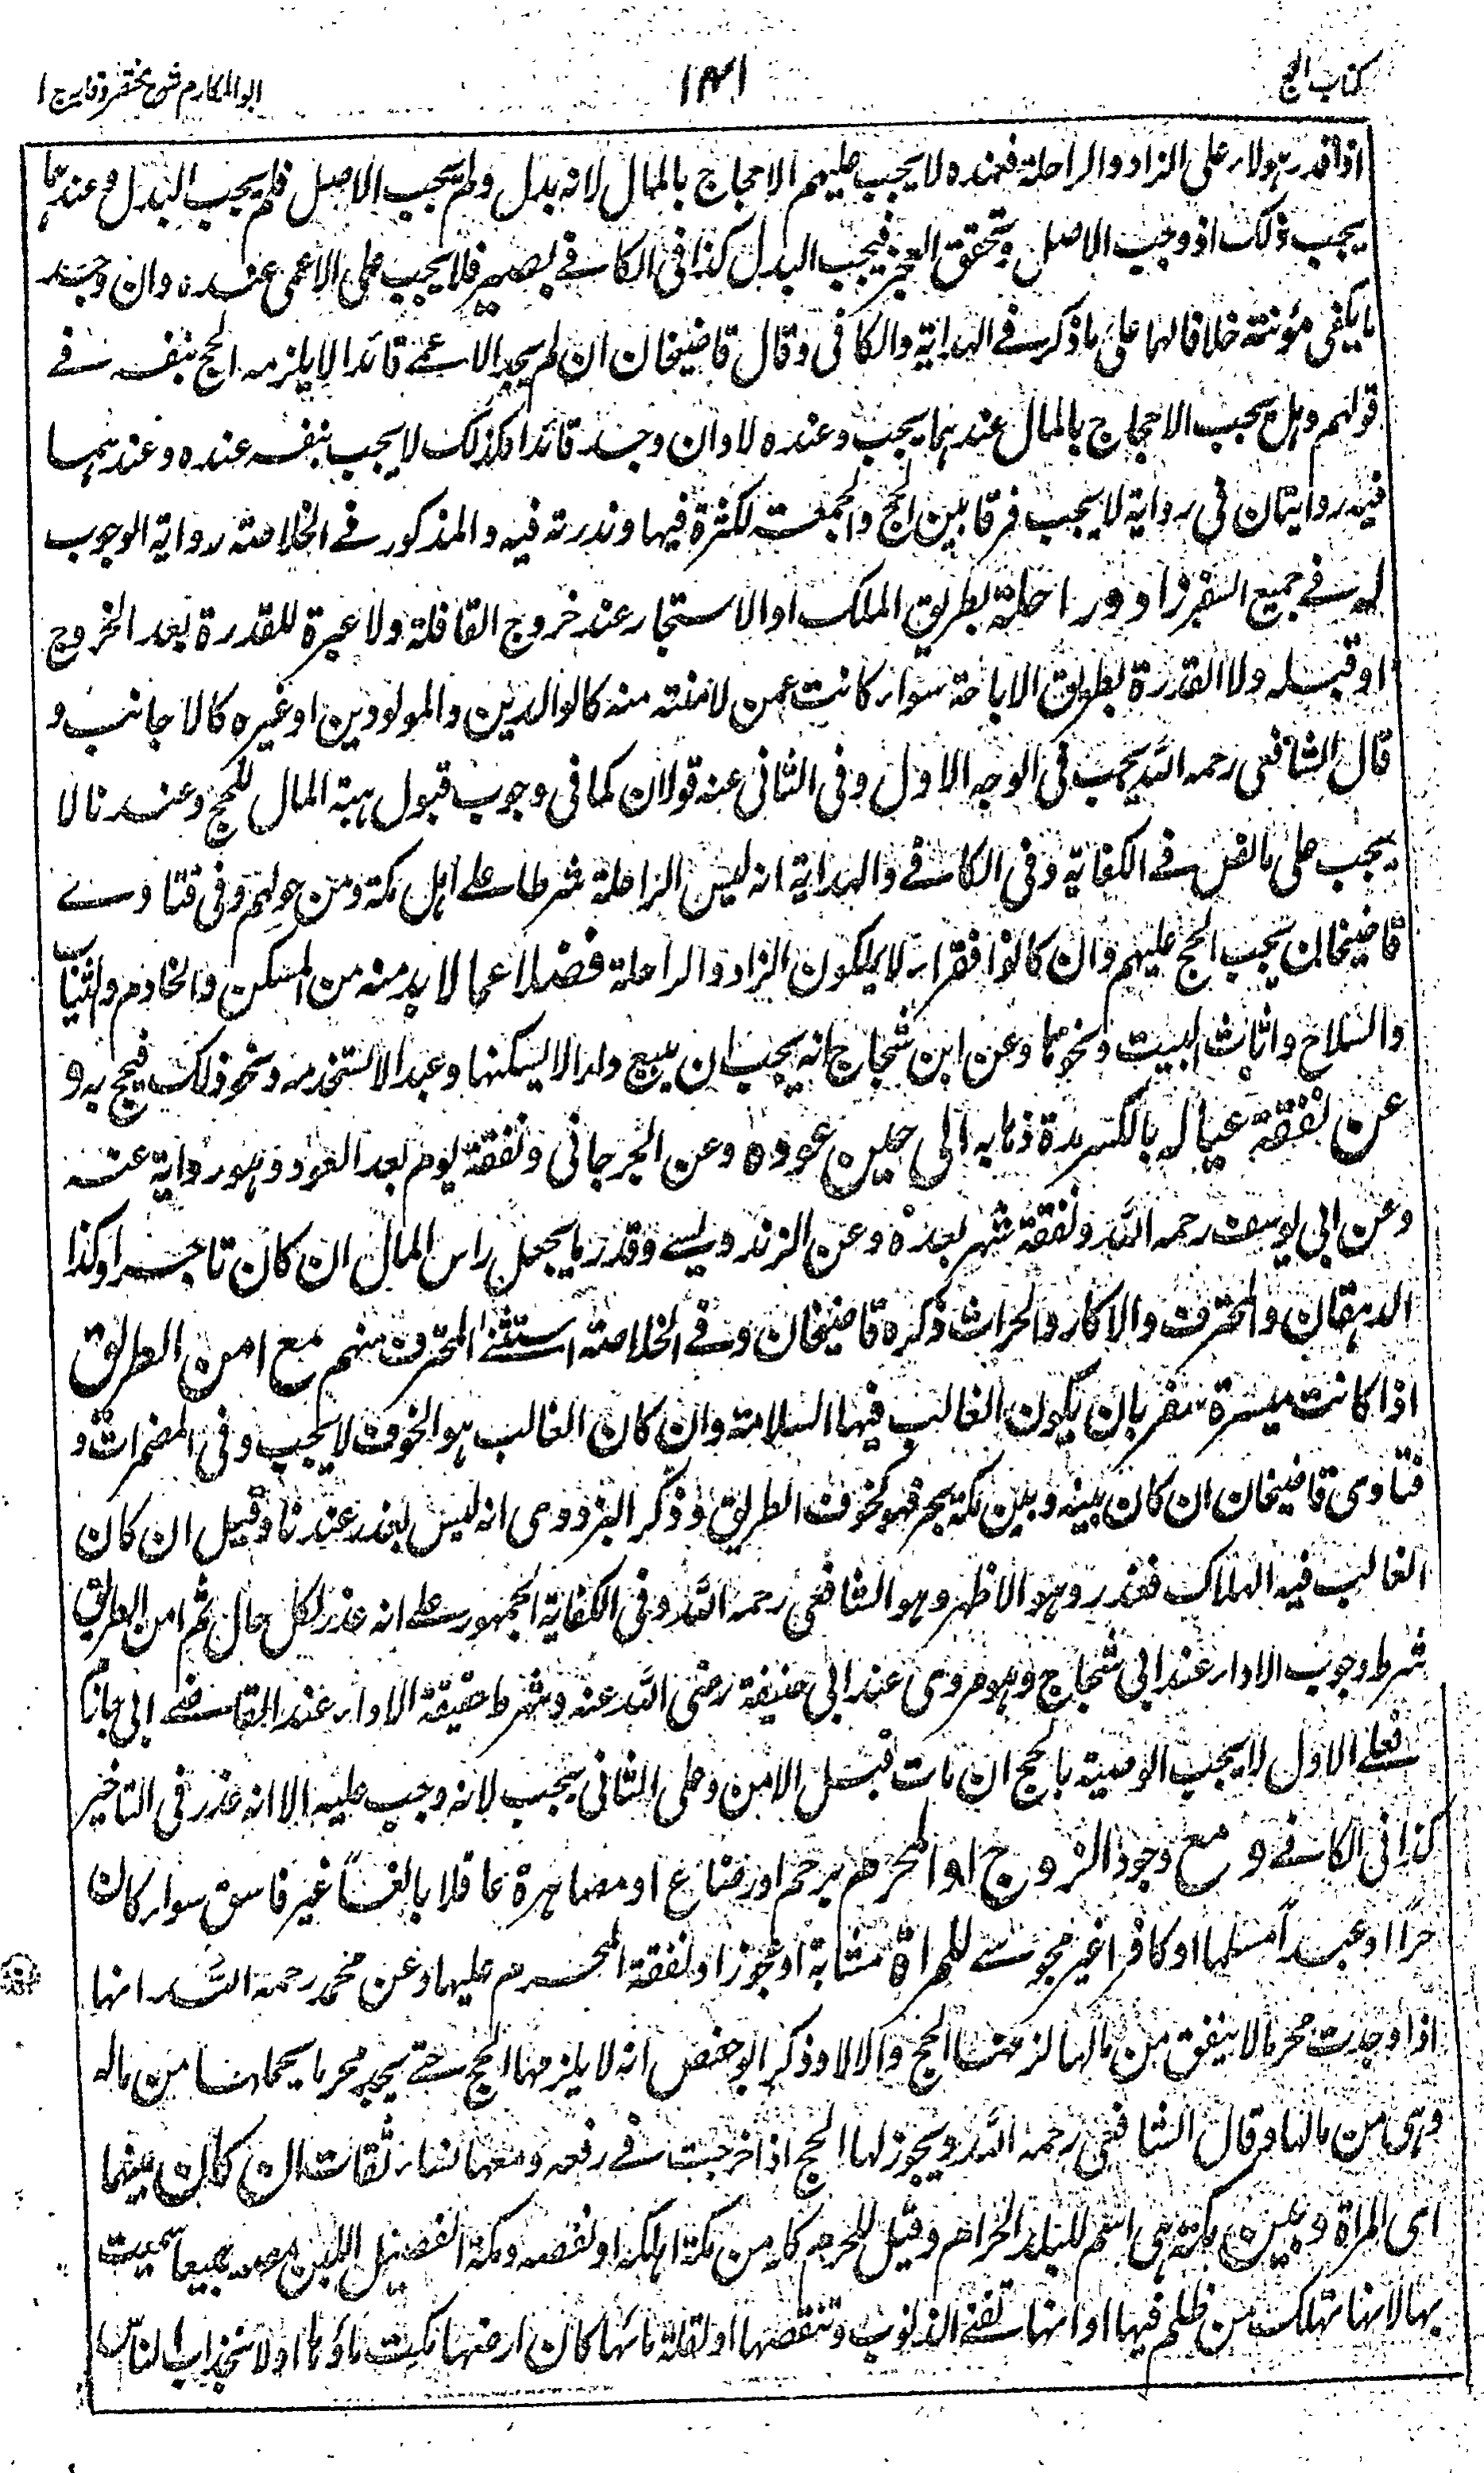 كتاب الحج
١٣١
ابو المكارم شرح مختصر وقايہ ج ١
اذا قدر ہؤلاء على الزاد والراحلة فعنده لا يجب عليهم الاحجاج بالمال لانه بدل ولم يجب الاصل فلم يجب البدل وعندہما
يجب ذلك اذ وجب الاصل وتحقق العجز فيجب البدل كذا فى الكافے بصير فلا يجب على الاعمى عنده وان وجد
ما يكفى مؤنتة خلافا لهما على ما ذكر فے الهداية والكافى وقال قاضيخان ان لم يجد الاعمے قائدا لا يلزمه الحج بنفسه فے
قولهم وہل يجب الاحجاج بالمال عندہما يجب وعنده لا وان وجد قائدا فكذلك لا يجب بنفسه عنده وعندہما
فيه روايتان فى رواية لا يجب فرقا بين الحج والجمعة لكثرة فيها وندرته فيه والمذكور فے الخلاصة رواية الوجوب
له فے جميع السفر زاد وراحلة بطريق الملك او الاستجار عند خروج القافلة ولا عبرة للقدرة بعد الخروج
او قبله ولا القدرة بطريق الاباحة سواء كانت عمن لا منة منه كالوالدين والمولودين او غيره كالاجانب و
قال الشافعى رحمه اللہ يجب فى الوجه الاول وفى الثانى عنه قولان كما فى وجوب قبول ہبة المال للحج وعندنا لا
يجب على ما نص فے الكفاية وفى الكافے والهداية انه ليس الراحلة شرطا علے اہل مكة ومن حولهم وفى فتاوے
قاضيخان يجب الحج عليهم وان كانوا فقراء لا يملكون الزاد والراحلة فضلا عما لا بد منه من المسكن والخادم والثياب
والسلاح واثاث البيت ونحوہا وعن ابن شجاج انه يجب ان يبيع دارا لا يسكنها وعبدا لا يستخدمه ونحو ذلك فيحج به و
عن نفقة عيال بالكسر مدة ذہابه الى حين عوده وعن الجرجانى ونفقة يوم بعد العود وہو رواية عنه
وعن ابى يوسف رحمه اللہ ونفقة شهر بعده وعن الزندويسے وقدر ما يجعل راس المال ان كان تاجرا وكذا
الدہقان والمحترف والاكار والحراث ذكره قاضيخان وفے الخلاصة استثنے المحترف منهم مع امن الطريق
اذا كانت ميسرة سفر بان يكون الغالب فيها السلامة وان كان الغالب ہو الخوف لا يجب وفى المضمرات و
فتاوى قاضيخان ان كان بينه وبين مكة بحر فهو كخوف الطريق وذكر البزدوى انه ليس بعذر عندنا وقيل ان كان
الغالب فيه الهلاك فعذر وہو الاظهر وہو الشافعى رحمه اللہ وفى الكفاية الجمهور علے انه عذر لكل حال ثم امن الطريق
شرط وجوب الاداء عند ابى شجاج وہو مروى عند ابى حنيفة رضى اللہ عنه وشرط حقيقة الاداء عند القاضے ابى حازم
فعلے الاول لا يجب الوصية بالحج ان مات قبل الامن وعلى الثانى يجب لانه وجب عليه الا انه عذر فى التاخير
كذا فى الكافے و مع وجود الزوج او المحرم برحم او رضاع او مصاہرة عاقلا بالغاً غير فاسق سواء كان
حراً او عبداً مسلما او كافرا غير مجوسے للمراة شابة او عجوزا ونفقة المحرم عليها وعن محمد رحمه اللہ انها
اذا وجدت محرما لا ينفق من مالها لزمها الحج والا لا وذكر ابو حفص انه لا يلزمها الحج حتے يجد محرما يحملها من ماله
وہى من مالها وقال الشافعى رحمه اللہ ويجوز لها الحج اذا خرجت فے رفعه ومعها نساء ثقات ان كان بينها
اى المراة وبين مكة ہى اسم للبلد الحرام وقيل للحرم كله من مكة اہلكه او نقصه ومكة الفصيل اللبن مصه جميعا سميت
بها لانها تهلك من ظلم فيها او انها تفنے الذنوب وتنقصها او لقلة مائها كان ارضها مكت ماؤہا او لانجذاب الناس